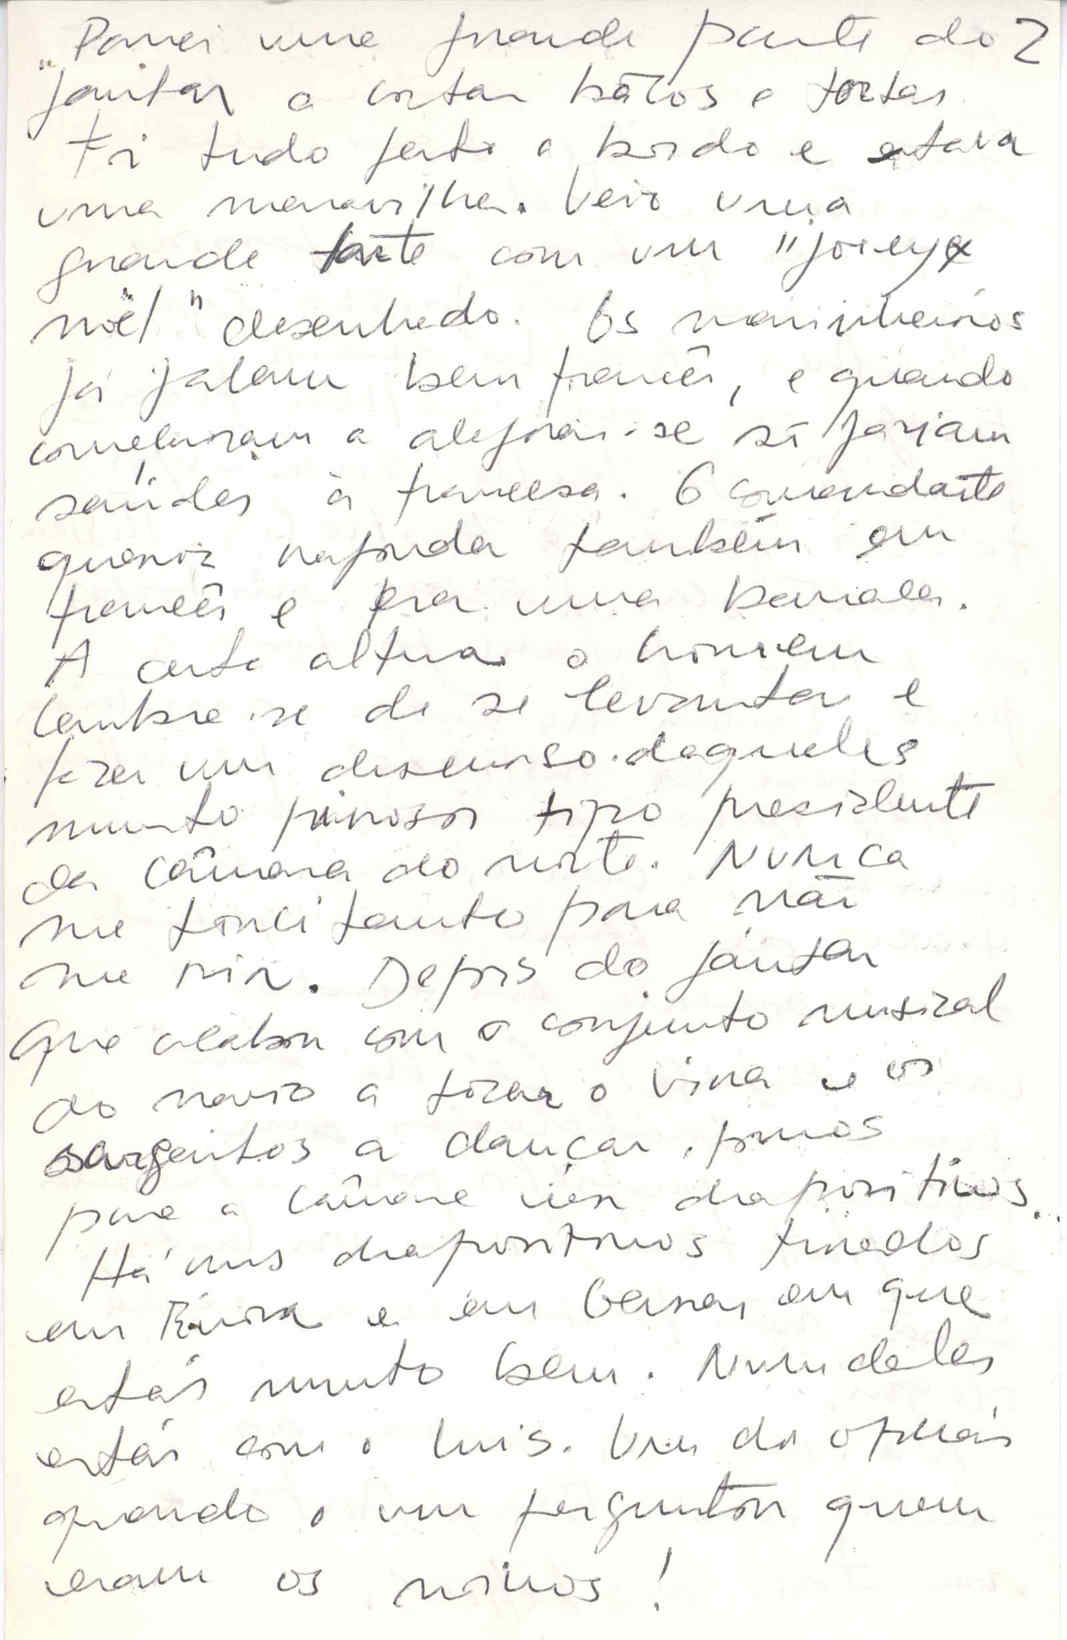 "Passei uma grande parte do 2
jantar a cortar bôlos e tortas
Foi tudo feito a bordo e estava
uma maravilha. Veio uma
grande tarte com um "joieyx
noël" desenhado. Os marinheiros
já falam bem francês, e quando
começaram a alegrar-se só faziam
saúdes à francesa. O comandante
queria responder também em
francês e era uma barraca.
A certa altura o homem
lembra-se de se levantar e
fazer um discurso daqueles
muito pirosos tipo presidente
da câmara do norte. Nunca
me torci tanto para não
me rir. Depois do jantar
que acabou com o conjunto musical
do navio a tocar o vira e os
sargentos a dançar, fomos
para a câmara ver diapositivos..
Há uns diapositivos tirados
em Évora e em em que
estás muito bem. Num deles
estás com o Luis. Um dos oficiais
quando o viu perguntou quem
eram os noivos!